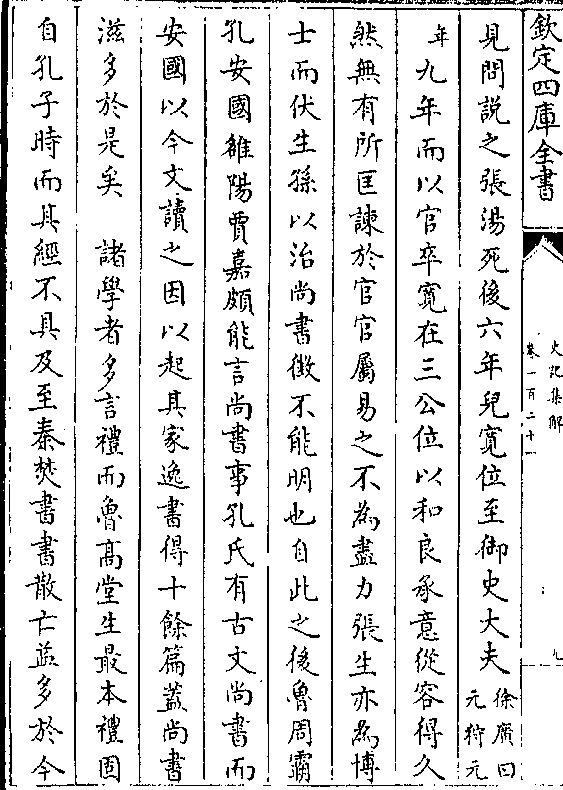 欽定四庫全書
史記集解
卷一百二十一
九
見問説之張湯死後六年兒寛位至御史大夫徐廣曰元狩元
年九年而以官卒寛在三公位以和良承意從容得久
然無有所匡諫於官官屬易之不為盡力張生亦為博
士而伏生孫以治尚書徴不能明也自此之後魯周霸
孔安國雒陽賈嘉頗能言尚書事孔氏有古文尚書而
安國以今文讀之因以起其家逸書得十餘篇蓋尚書
滋多於是矣 諸學者多言禮而魯髙堂生最本禮固
自孔子時而其經不具及至秦焚書書散亡益多於今